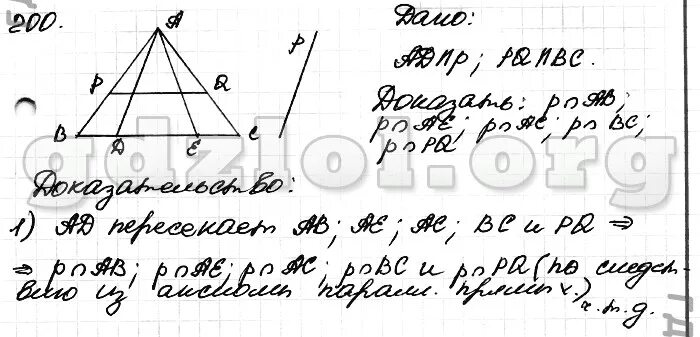 200.
Дано:
A
p
AD || p; PQ || BC.
P Q
Доказать: p∩AB;
B D E C
p∩AE; p∩AC; p∩BC;
p∩PQ
gdzlol.org
Доказательство:
1) AD пересекает AB; AE; AC; BC и PQ ⇒
⇒ p∩AB; p∩AE; p∩AC; p∩BC и p∩PQ (по следст-
вию из аксиомы паралл. прямых.)
ч.т.д.
ГД